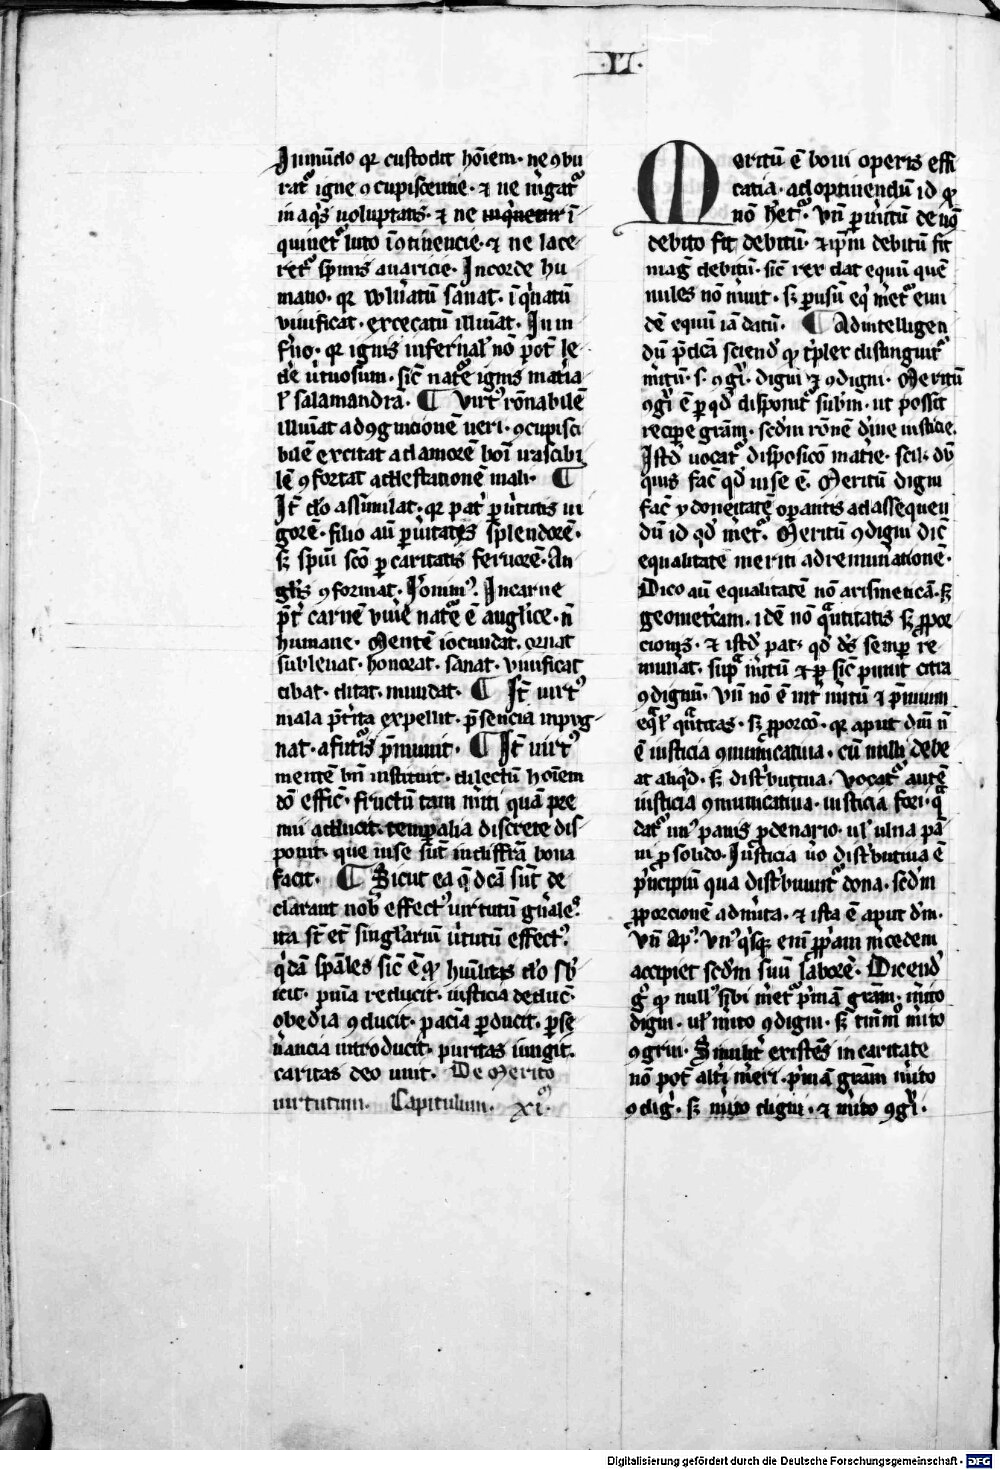 ·VI·
In mūdo qr custodit hoīem · ne ꝯbu
ratᷣ igne ꝯcupiscentie · ⁊ ne mgatᷣ
in aqͥs uoluptatis · ⁊ ne ī
quinetᷣ luto īꝯtinencie · ⁊ ne lace
retᷣ spinis auaricie · In corde hu
mano · qr wln̄atū sanat · īqͥnatū
viuificat · excecatū illuīat · In in
fͤno · qr ignis infernal' nō pōt le
de' ūtuosum · sic̄ natᷣe ignis matᷣia
l' salamandra · ¶ virtꝰ rōnabilē
illuīat ad ꝯgnicionē ueri · ꝯcupisci
bilē excitat ad amorē boī irascibi
lē ꝯfortat ad detestationē mali · ¶
It̄ do assimilat · qr patᷣ ꝑ ūtutis ui
gorē · filio aū ꝑ ūitatis splendorē ·
sꝫ spūi scō ꝑ caritatis feruorē · An
gl'is ꝯformat · In carne
pͭ carnē viuē natᷣe ē anglice · n̄
humane · Mentē iocundat · ornat
subleuat · honorat · sanat · viuificat
cibat · ditat · mundat · ¶ It̄ virtꝰ
mala p̄tᷣita expellit · p̄sencia inpug
nat · a futᷣis p̄munit · ¶ It̄ virtꝰ
mentē bn̄ instituit · dilectū hoīem
dō effic̄ · fructū tam mͥti quā pre
mii adducit · temꝑalia discrete dis
ponit · que in se sūt indiffr̄a bona
facit · ¶ Sicut ea q̄ dcā sūt de
clarant nob' effectꝰ uirtutū gn̄ales ·
ita st̄ et̄ singl'ariū ūtutū effectꝰ ·
qͥdā sp̄ales sic̄ ē ꝙ hūilitas do sb'
icit · pnīa reducit · iusticia deduc̄ ·
obedīa ꝯducit · paciā ꝑducit · ꝑse
ūancia introducit · puritas iungit ·
caritas deo unit · De Merito
uirtutum · Capitulum · xiᵐ ·
Meritū ē boni operis effi
catia · ad optinendū id ꝙ
nō hetᷣ · vn̄ ꝑ mͥitū de nō
debito fit debitū · ⁊ ip̄m debitū fit
mag̅ debitū · sic̄ rex dat equū quē
miles nō mͥuit · sꝫ pusū eqͥ mͥetᷣ eun
dē equū iā datū · ¶ Ad intelligen
dū p̄dcā sciend' ꝙ tͥpler distinguitᷣ
mͥitū · s · ꝯgͥ · digni ⁊ ꝯdigni · Meritū
ꝯgͥ ē ꝑ qd' disponitᷣ subm · ut possit
reciꝑe grām · scdm rōnē diͥne iusticie ·
Istd' uocatᷣ disposicō matͥie · scil · dū
quis fac̄ qd' in se ē · Meritū digni
fac̄ ydoneitatē oꝑantis ad assequen
dū id qd' mͥetᷣ · Meritū ꝯdigni dic̄
equalitatē meriti ad remunͣationē ·
Dico aū equalitatē nō arismeticā · sꝫ
geometͥcam · idē nō qͣntitatis sꝫ ꝓpor
cionis · ⁊ istd' pat · qd' ds' semꝑ re
munͣat · supͣ mͥitū ⁊ ꝑ sic̄ punit citra
ꝯdignū · vn̄ nō ē int' mͥitū ⁊ p̄miuin
eqͣl' qͣntitas · sꝫ ꝓporcō · qr aput dm̄ n̄
ē iusticia ꝯmutͣcatiua · cū nulli debe
at aliqͥd · sꝫ distͥbutiua · vocatᷣ autē
iusticia ꝯmunicatiua · iusticia fori · qͣ
datᷣ unꝰ panis ꝓ denario · ul' ulna pā
ni ꝓ solido · Iusticia ūo distͥbutiua ē
pͥncipiū qua distͥbuuntᷣ dona · scdm
ꝓporcionē ad mͥita · ⁊ ista ē aput dm̄ ·
vn̄ apꝰ · vnꝰqͥsqꝫ enī ꝓpͥam mͥcedem
accipiet scdm suū laborē · Dicend'
gͦ ꝙ nullꝰ sibi mͥetᷣ pͥmā grām · mͥito
digni · ul' mͥito ꝯdigni · sꝫ tm̄mᵒ mͥito
ꝯgrui · Similit' existēs in caritate
nō pōt altͥi mͥeri · pͥmā grām mͥito
ꝯdig' · sꝫ mͥito digni · ⁊ mͥito ꝯgͥ ·
Digitalisierung gefördert durch die Deutsche Forschungsgemeinschaft - DFG